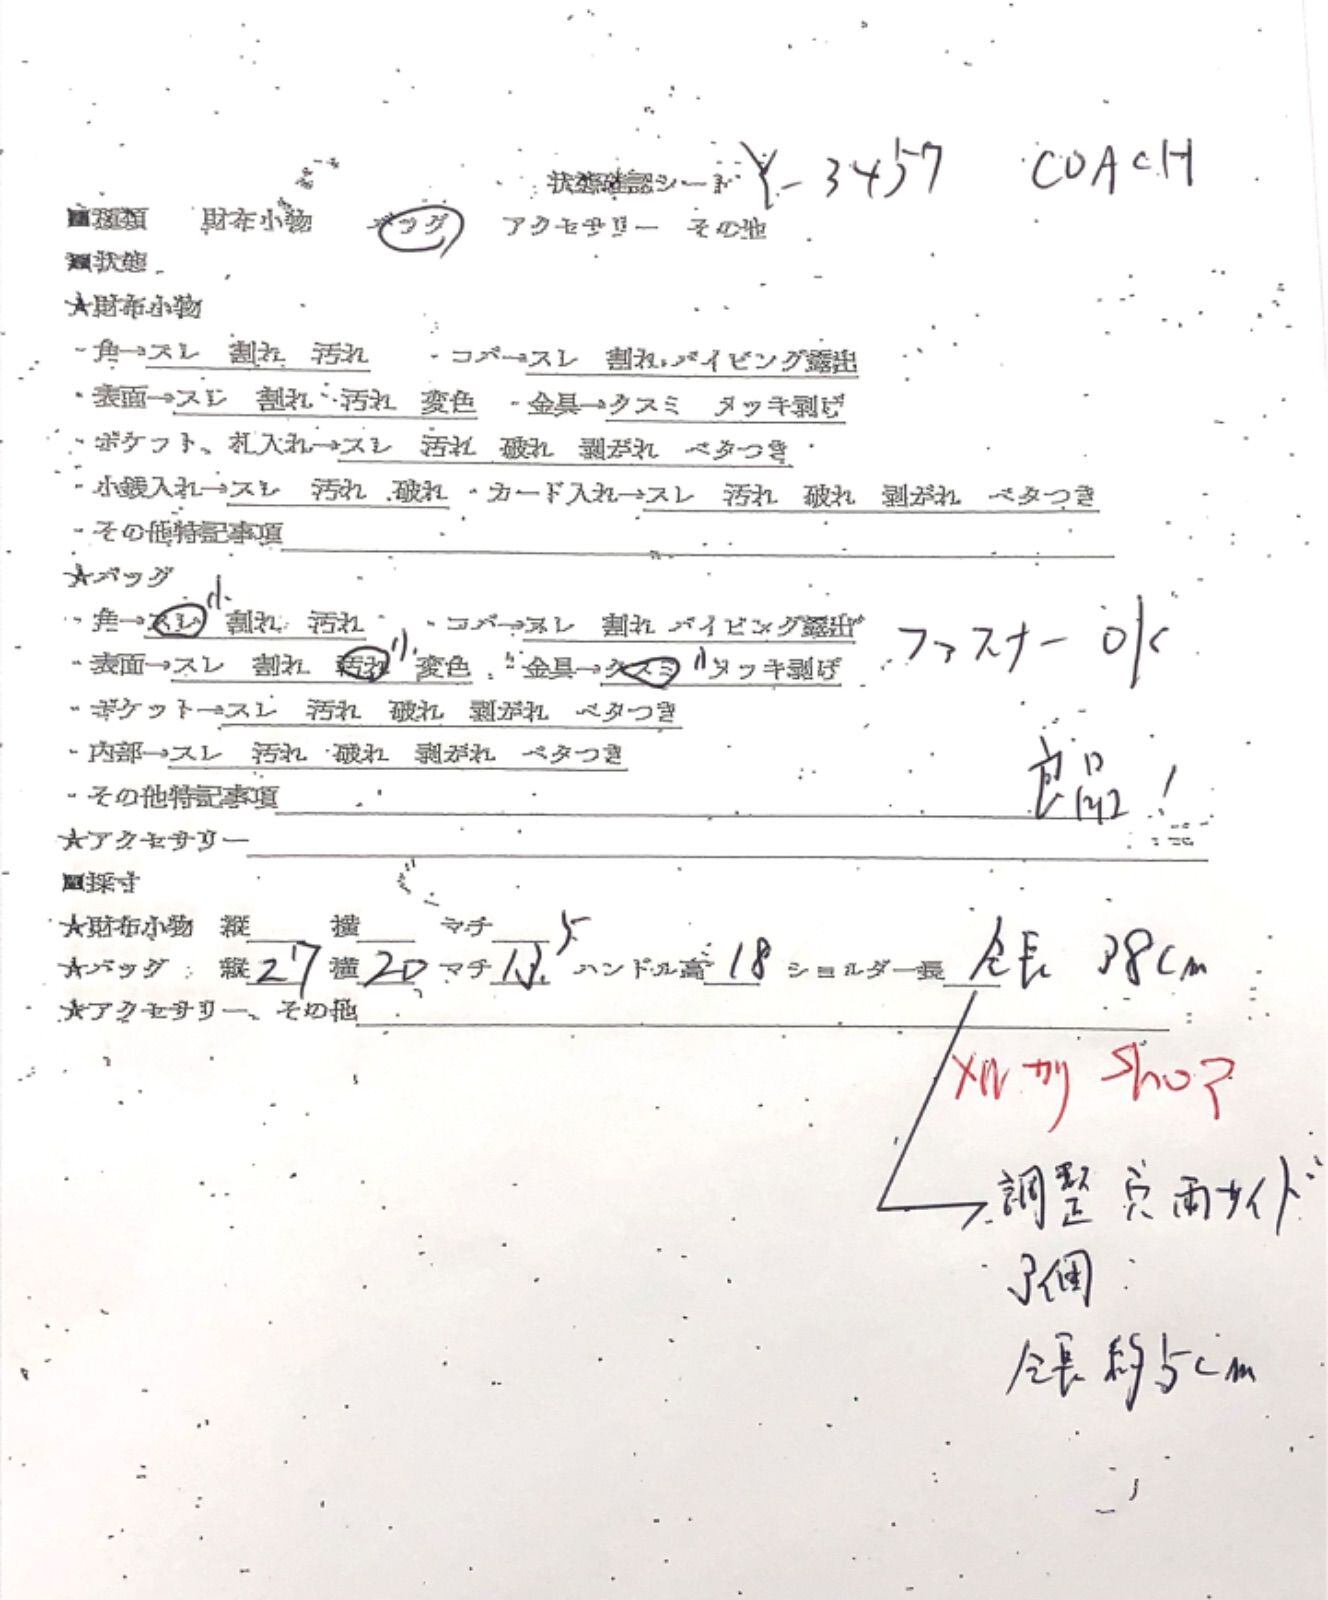 状態確認シート Y-3457 COACH
■種類 財布小物 バッグ アクセサリー その他
■状態
★財布小物
・角→スレ 割れ 汚れ ・コバ→スレ 割れ パイピング露出
・表面→スレ 割れ 汚れ 変色 ・金具→クスミ メッキ剥げ
・ポケット、札入れ→スレ 汚れ 破れ 剥がれ ベタつき
・小銭入れ→スレ 汚れ 破れ ・カード入れ→スレ 汚れ 破れ 剥がれ ベタつき
・その他特記事項
★バッグ
・角→スレ小 割れ 汚れ ・コバ→スレ 割れ パイピング露出 ファスナー OK
・表面→スレ 割れ 汚れ小 変色 ・金具→クスミ小 メッキ剥げ
・ポケット→スレ 汚れ 破れ 剥がれ ベタつき
・内部→スレ 汚れ 破れ 剥がれ ベタつき
・その他特記事項 良品!
★アクセサリー
■採寸
★財布小物 縦 横 マチ
★バッグ 縦27 横20 マチ13.5 ハンドル高18 ショルダー長 全長 38cm
★アクセサリー、その他
メルカリ Shop
調整穴両サイド
3個
全長約5cm